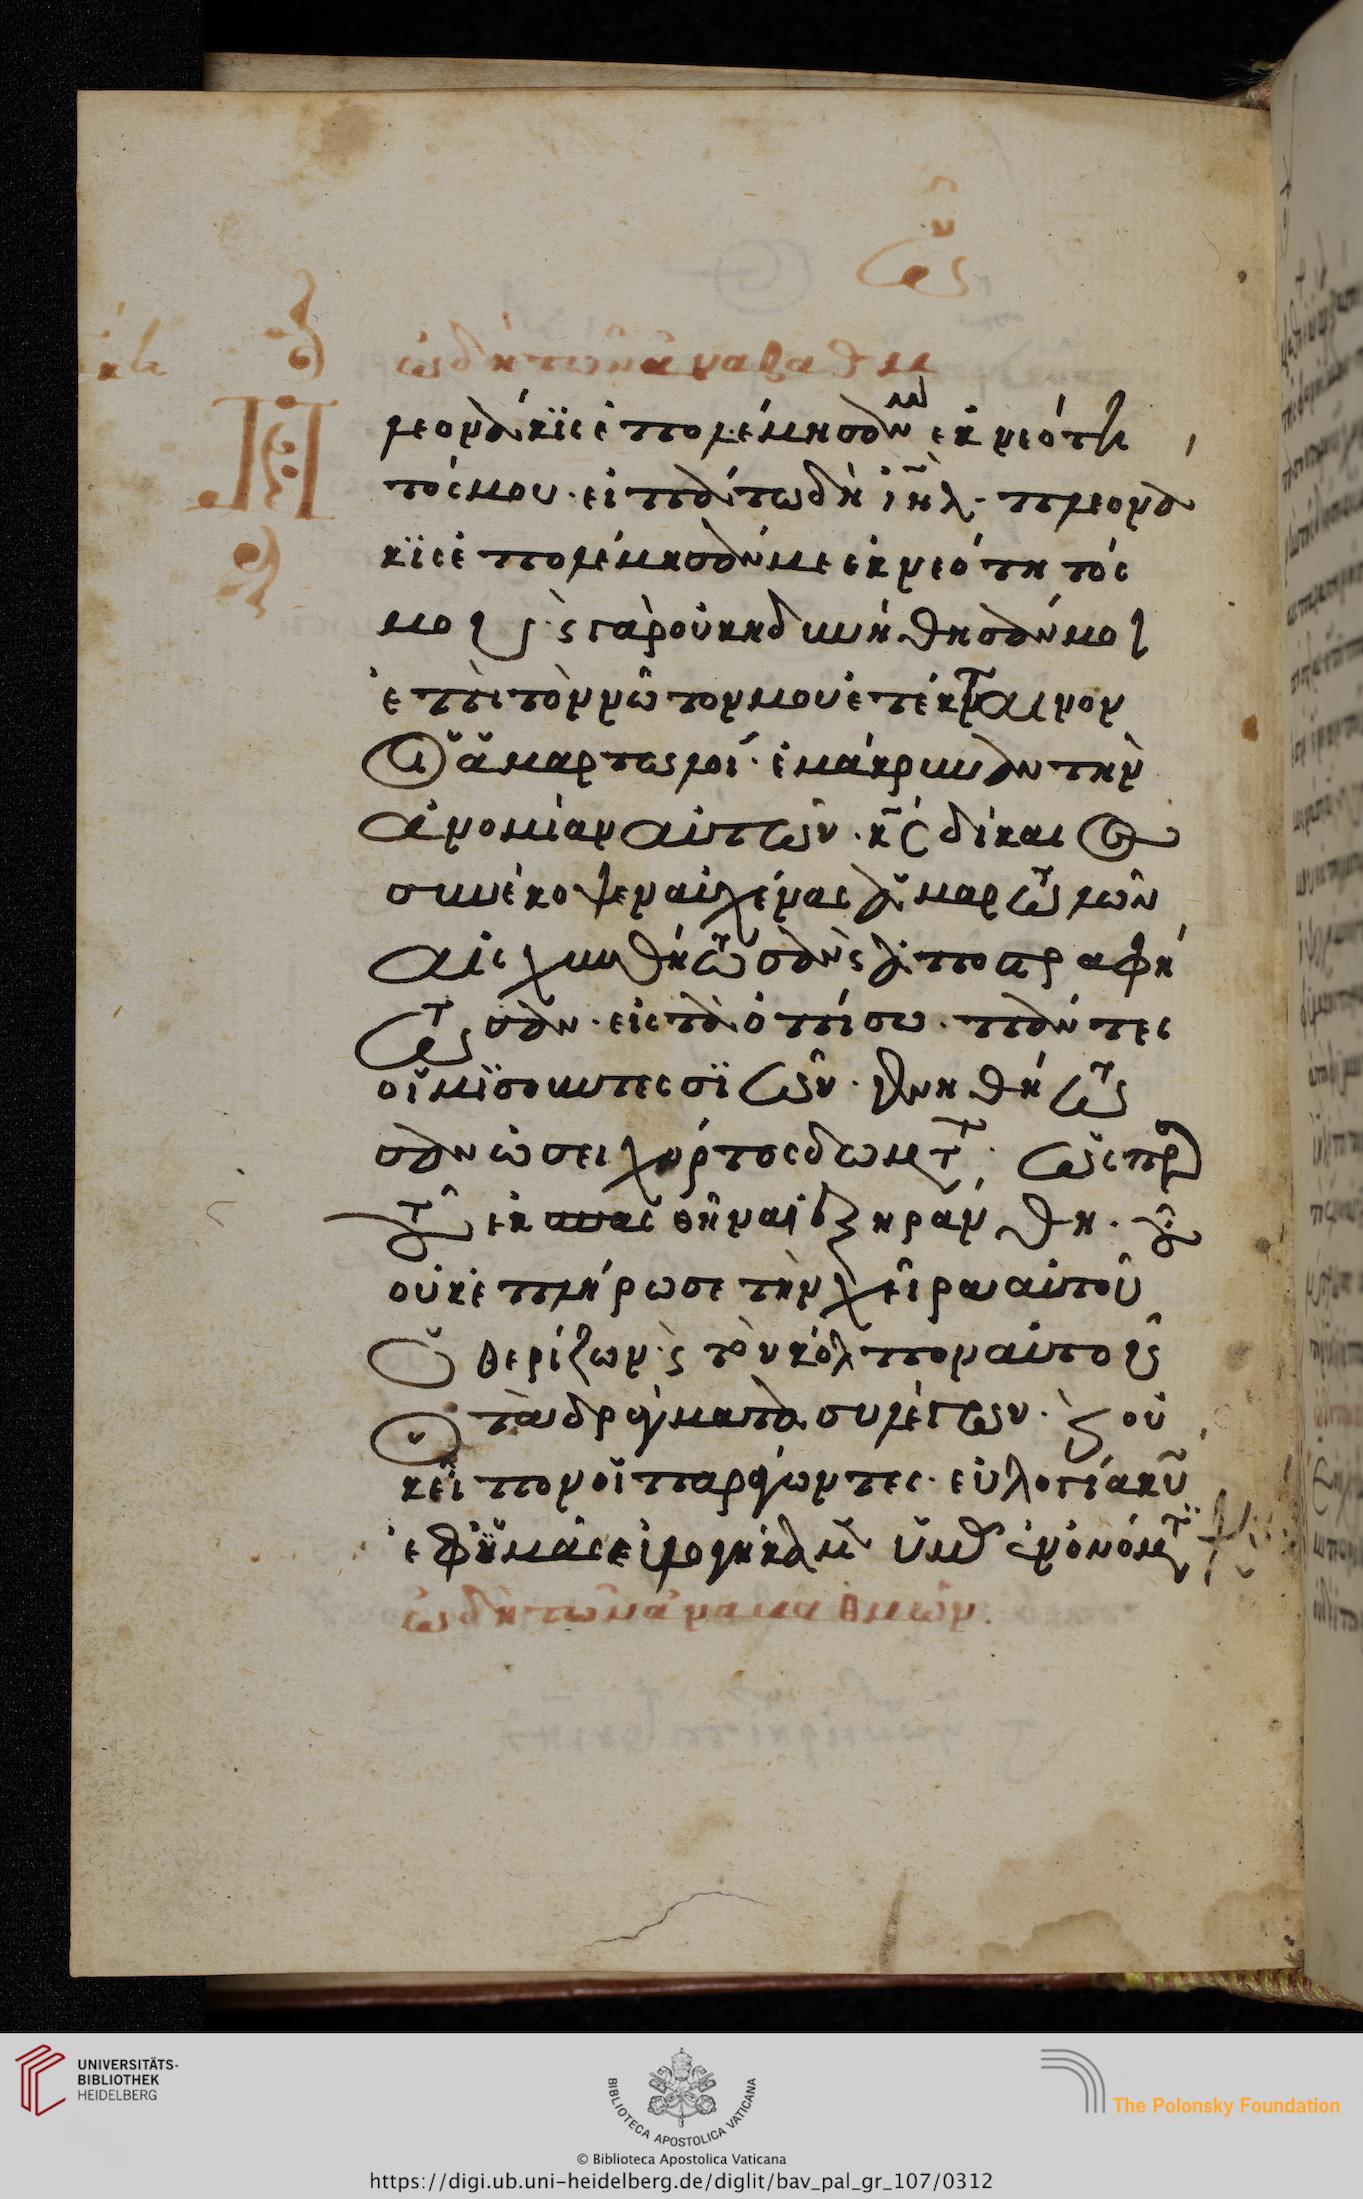 ὠδὴ τῶν ἀναβαθμ
Πλεονάκϊς ἐπολέμησάν με ἐκ νεότη
τός μου· εἰπάτω δὴ ἰηλ· πλεονά
κϊς ἐπολέμησάν με ἐκ νεότητός
μου· ϛ γὰρ οὐκ ἠδυνήθησάν μοι
ἐπὶ τὸν νῶτον μου ἐτέκταινον
οἱ ἁμαρτωλοί· ἐμάκρυναν τὴν
ἀνομίαν αὐτῶν· κς δίκαιος
συνέκοψεν αὐχένας ἁμαρτωλῶν
αἰσχυνθήτωσαν ϛ ἀποστραφή
τωσαν εἰς τὰ ὀπίσω· πάντες
οἱ μϊσοῦντες σϊών· γενηθήτω
σαν ὡσεὶ χόρτος δωμάτων· ὡς πρ
τοῦ ἐκσπασθῆναι ἐξηράνθη· οὗ
οὐκ ἐπλήρωσε τὴν χεῖρα αὐτοῦ
ὁ θερίζων· ϛ τὸν κόλπον αὐτοῦ
ὁ τὰ δράγματα συλέγων· ϛ οὐ
κ εἶπον οἱ παράγοντες· εὐλογία κυ
ἐφ' ὑμᾶς εὐλογήκαμεν ὑμᾶς ἐν ὀνόματι
ὠδὴ τῶν ἀναβαθμῶν.
UNIVERSITÄTS-
BIBLIOTHEK
HEIDELBERG
BIBLIOTECA APOSTOLICA VATICANA
© Biblioteca Apostolica Vaticana
The Polonsky Foundation
https://digi.ub.uni-heidelberg.de/diglit/bav_pal_gr_107/0312